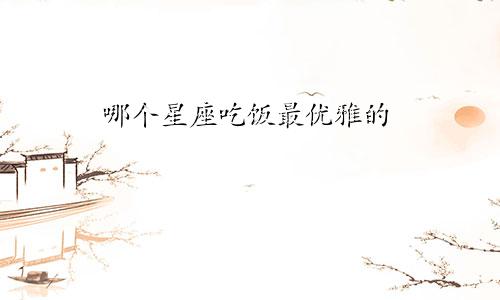 哪个星座吃饭最优雅的